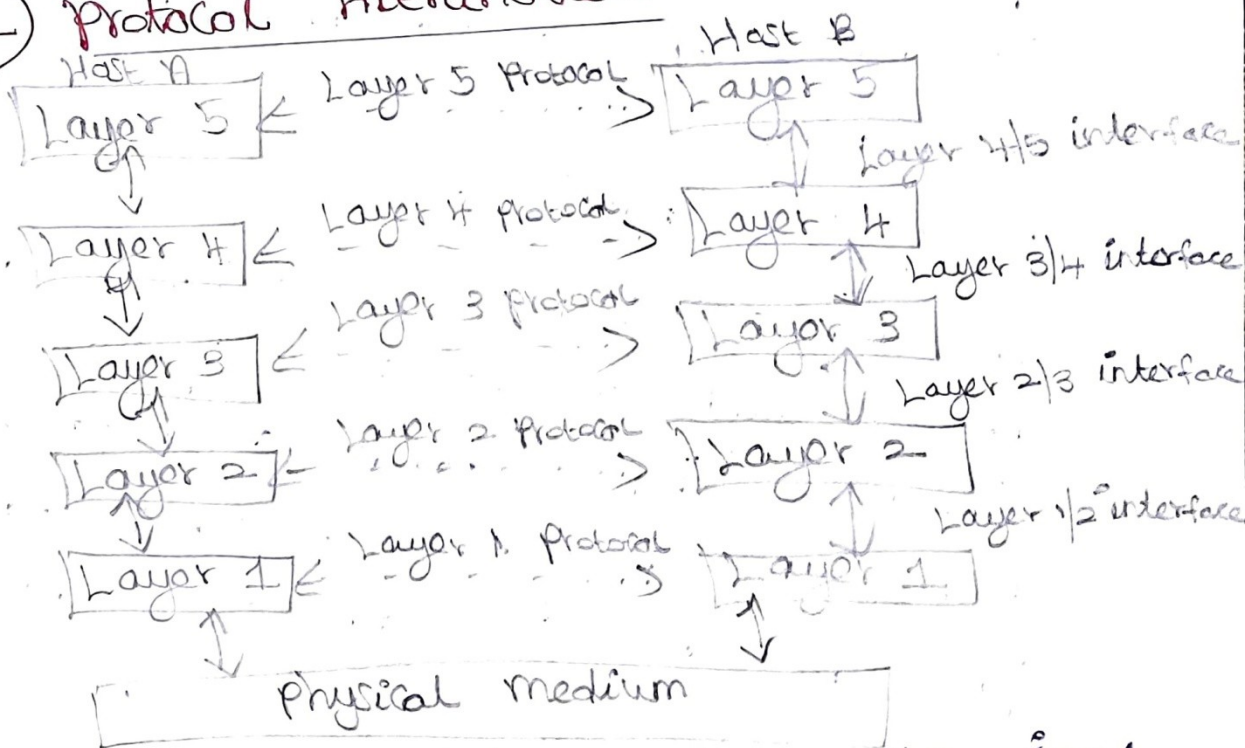 Protocol
Host A
Host B
Layer 5
Layer 5 Protocol
Layer 5
Layer 4/5 interface
Layer 4
Layer 4 Protocol
Layer 4
Layer 3/4 interface
Layer 3
Layer 3 protocol
Layer 3
Layer 2/3 interface
Layer 2
Layer 2 Protocol
Layer 2
Layer 1/2 interface
Layer 1
Layer 1 Protocol
Layer 1
Physical medium